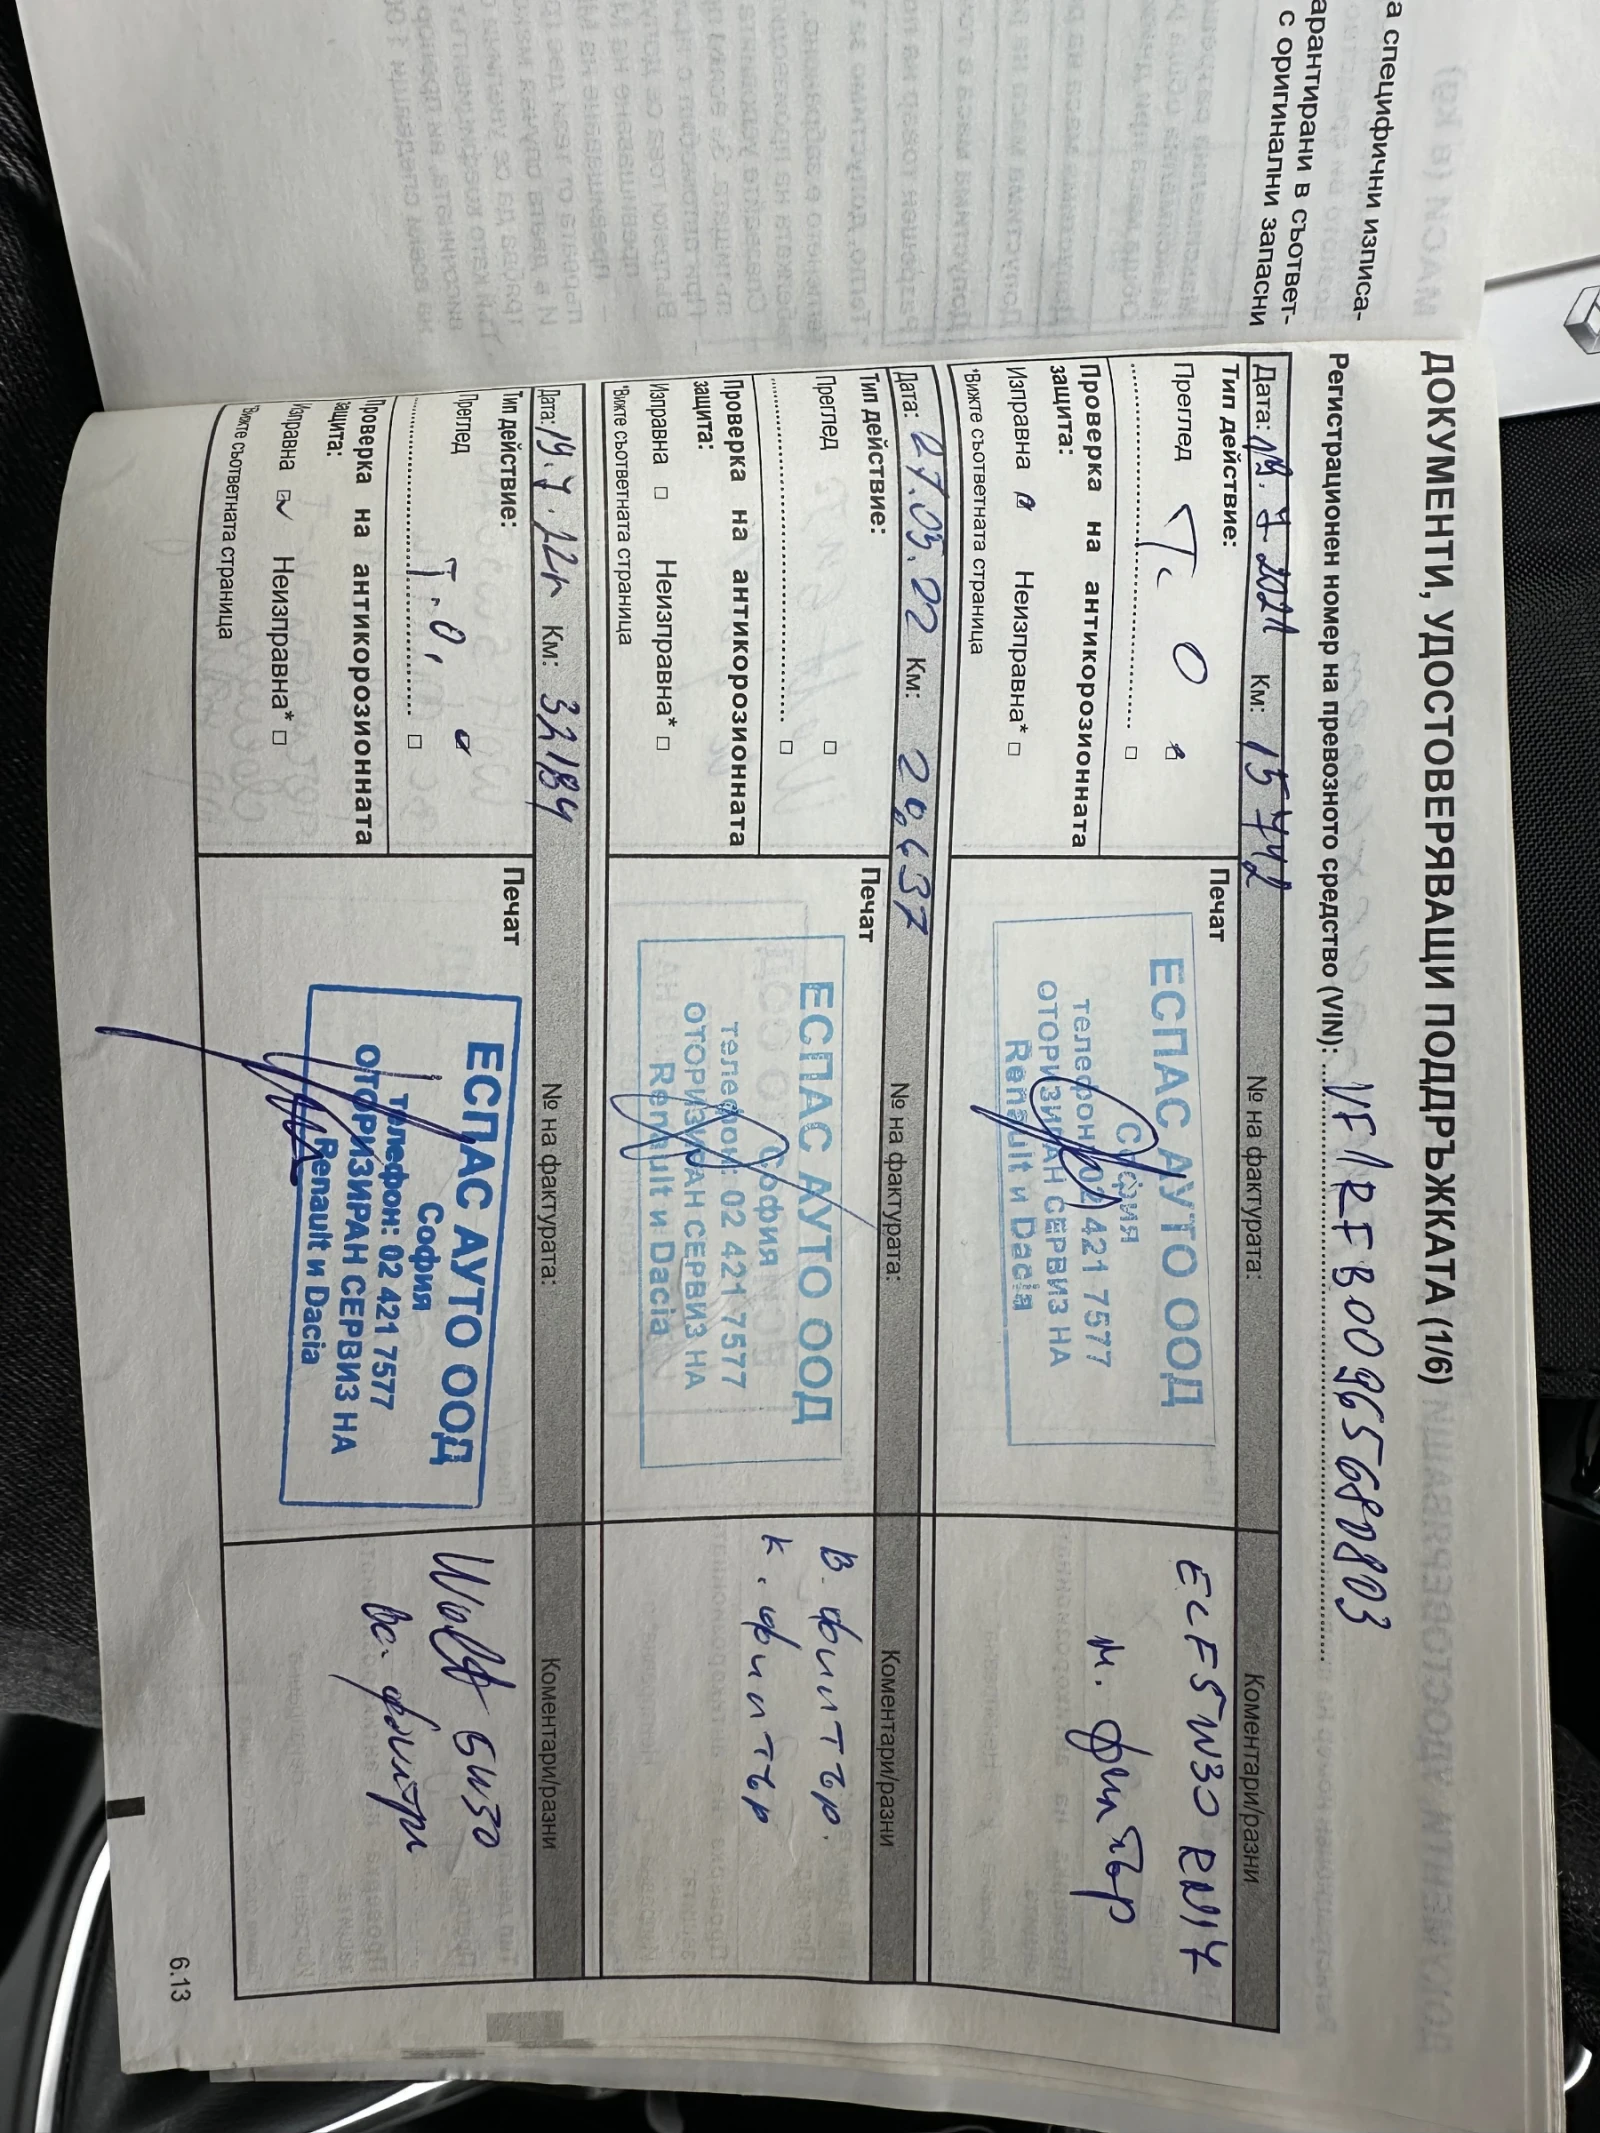 а специфични изписа-
арантирани в съответ-
с оригинални запасни
ДОКУМЕНТИ, УДОСТОВЕРЯВАЩИ ПОДДРЪЖКАТА (1/6)
Регистрационен номер на превозното средство (VIN): VF1RFB00965680803
Дата: 19.7.2021 Км: 15742 № на фактурата: Коментари/разни
Тип действие:
Преглед Т. О
Проверка на антикорозионната
защита:
Изправна Неизправна*
*Вижте съответната страница
Печат
ЕСПАС АУТО ООД
София
телефон: 02 421 7577
ОТОРИЗИРАН СЕРВИЗ НА
Renault и Dacia
ELF 5W30 RN17
м. филтър
Дата: 27.05.22 Км: № на фактурата: Коментари/разни
Тип действие:
Преглед
Проверка на антикорозионната
защита:
Изправна Неизправна*
*Вижте съответната страница
Печат
ЕСПАС АУТО ООД
София
телефон: 02 421 7577
ОТОРИЗИРАН СЕРВИЗ НА
Renault и Dacia
В. филтър.
к. филтър
Дата: 19.7.22г Км: 32184 № на фактурата: Коментари/разни
Тип действие:
Преглед
Т.О.
Проверка на антикорозионната
защита:
Изправна Неизправна*
*Вижте съответната страница
Печат
ЕСПАС АУТО ООД
София
телефон: 02 421 7577
ОТОРИЗИРАН СЕРВИЗ НА
Renault и Dacia
Wolf 5W30
вс. филтри
6.13